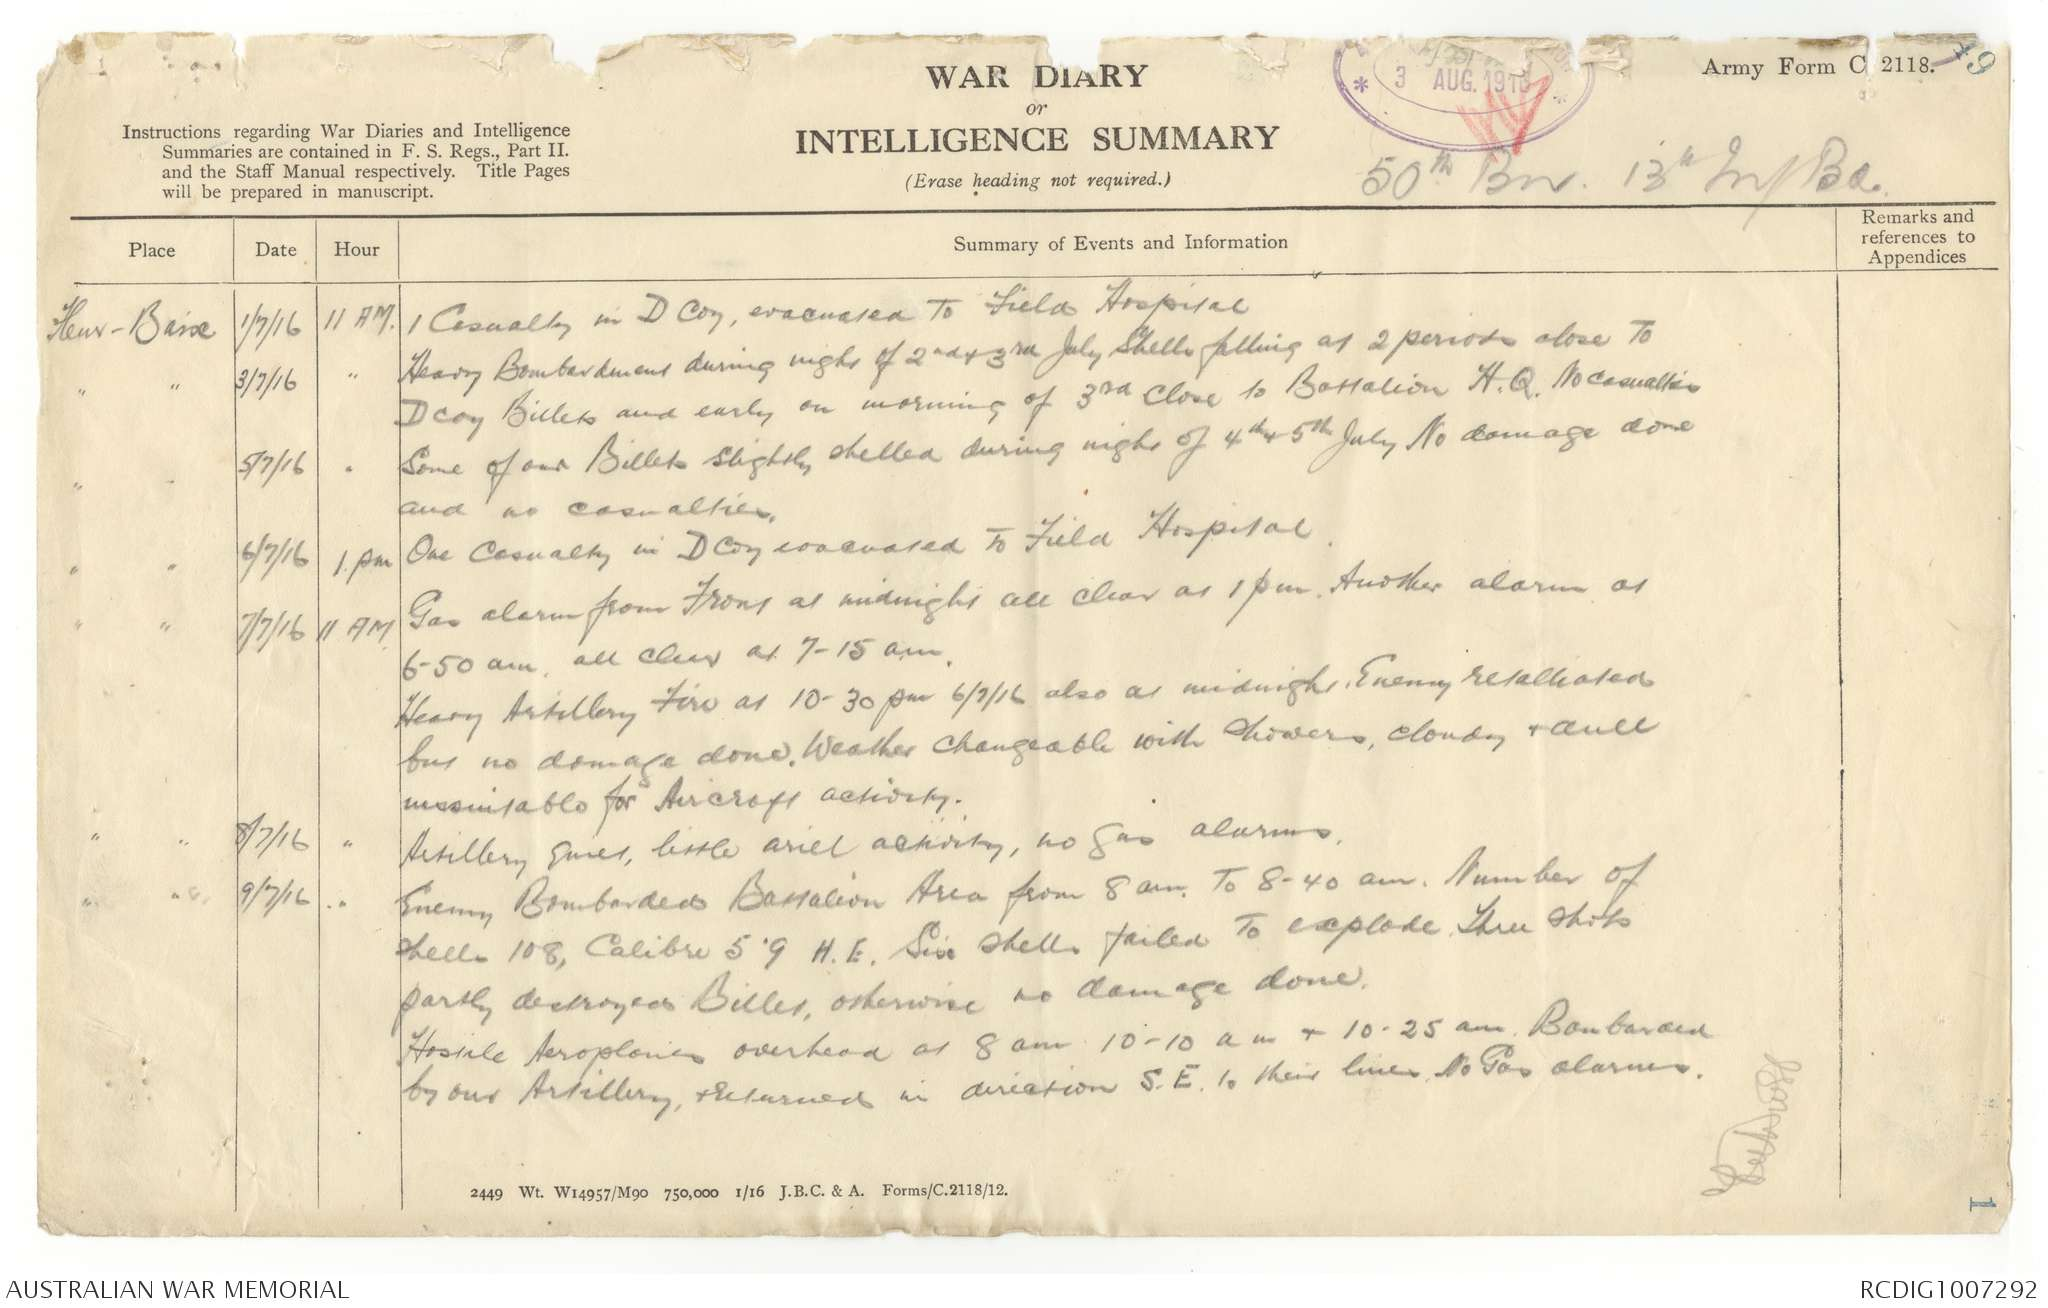 WAR DIARY
or
INTELLIGENCE SUMMARY
(Erase heading not required.)
Army Form C. 2118.
3 AUG. 191
Instructions regarding War Diaries and Intelligence
Summaries are contained in F. S. Regs., Part II.
and the Staff Manual respectively. Title Pages
will be prepared in manuscript.
50th Bn. 13th Inf Bde.
Place
Date
Hour
Summary of Events and Information
Remarks and
references to
Appendices
Fleur-Baix 1/7/16 11 AM. 1 Casualty in D Coy, evacuated To Field Hospital
" " 3/7/16 " Heavy Bombardment during night of 2nd + 3rd July Shells falling at 2 periods close To
D coy Billets and early on morning of 3rd Close to Battalion H.Q. No casualties
" " 5/7/16 " Some of our Billets slightly shelled during night of 4th + 5th July No damage done
and no casualties.
" " 6/7/16 1. pm One Casualty in D Coy evacuated To Field Hospital.
" " 7/7/16 11 AM Gas alarm from Front at midnight all clear at 1 pm. Another alarm at
6-50 am. all clear at 7-15 am.
Heavy Artillery Fire at 10-30 pm 6/7/16 also at midnight. Enemy retaliated
but no damage done. Weather changeable with showers, cloudy + dull
unsuitable for Aircraft activity.
" " 8/7/16 " Artillery quiet, little ariel activity, no gas alarms.
" " 9/7/16 " Enemy Bombarded Battalion Area from 8 am. To 8-40 am. Number of
shells 108, Calibre 5.9 H.E. Six shells failed To explode. Three shots
partly destroyed Billet, otherwise no damage done.
Hostile Aeroplanes overhead at 8 am 10-10 am + 10-25 am. Bombarded
by our Artillery, + returned in direction S.E. to their lines. No Gas alarms.
2449 Wt. W14957/M90 750,000 1/16 J.B.C. & A. Forms/C.2118/12.
1
AUSTRALIAN WAR MEMORIAL
RCDIG1007292